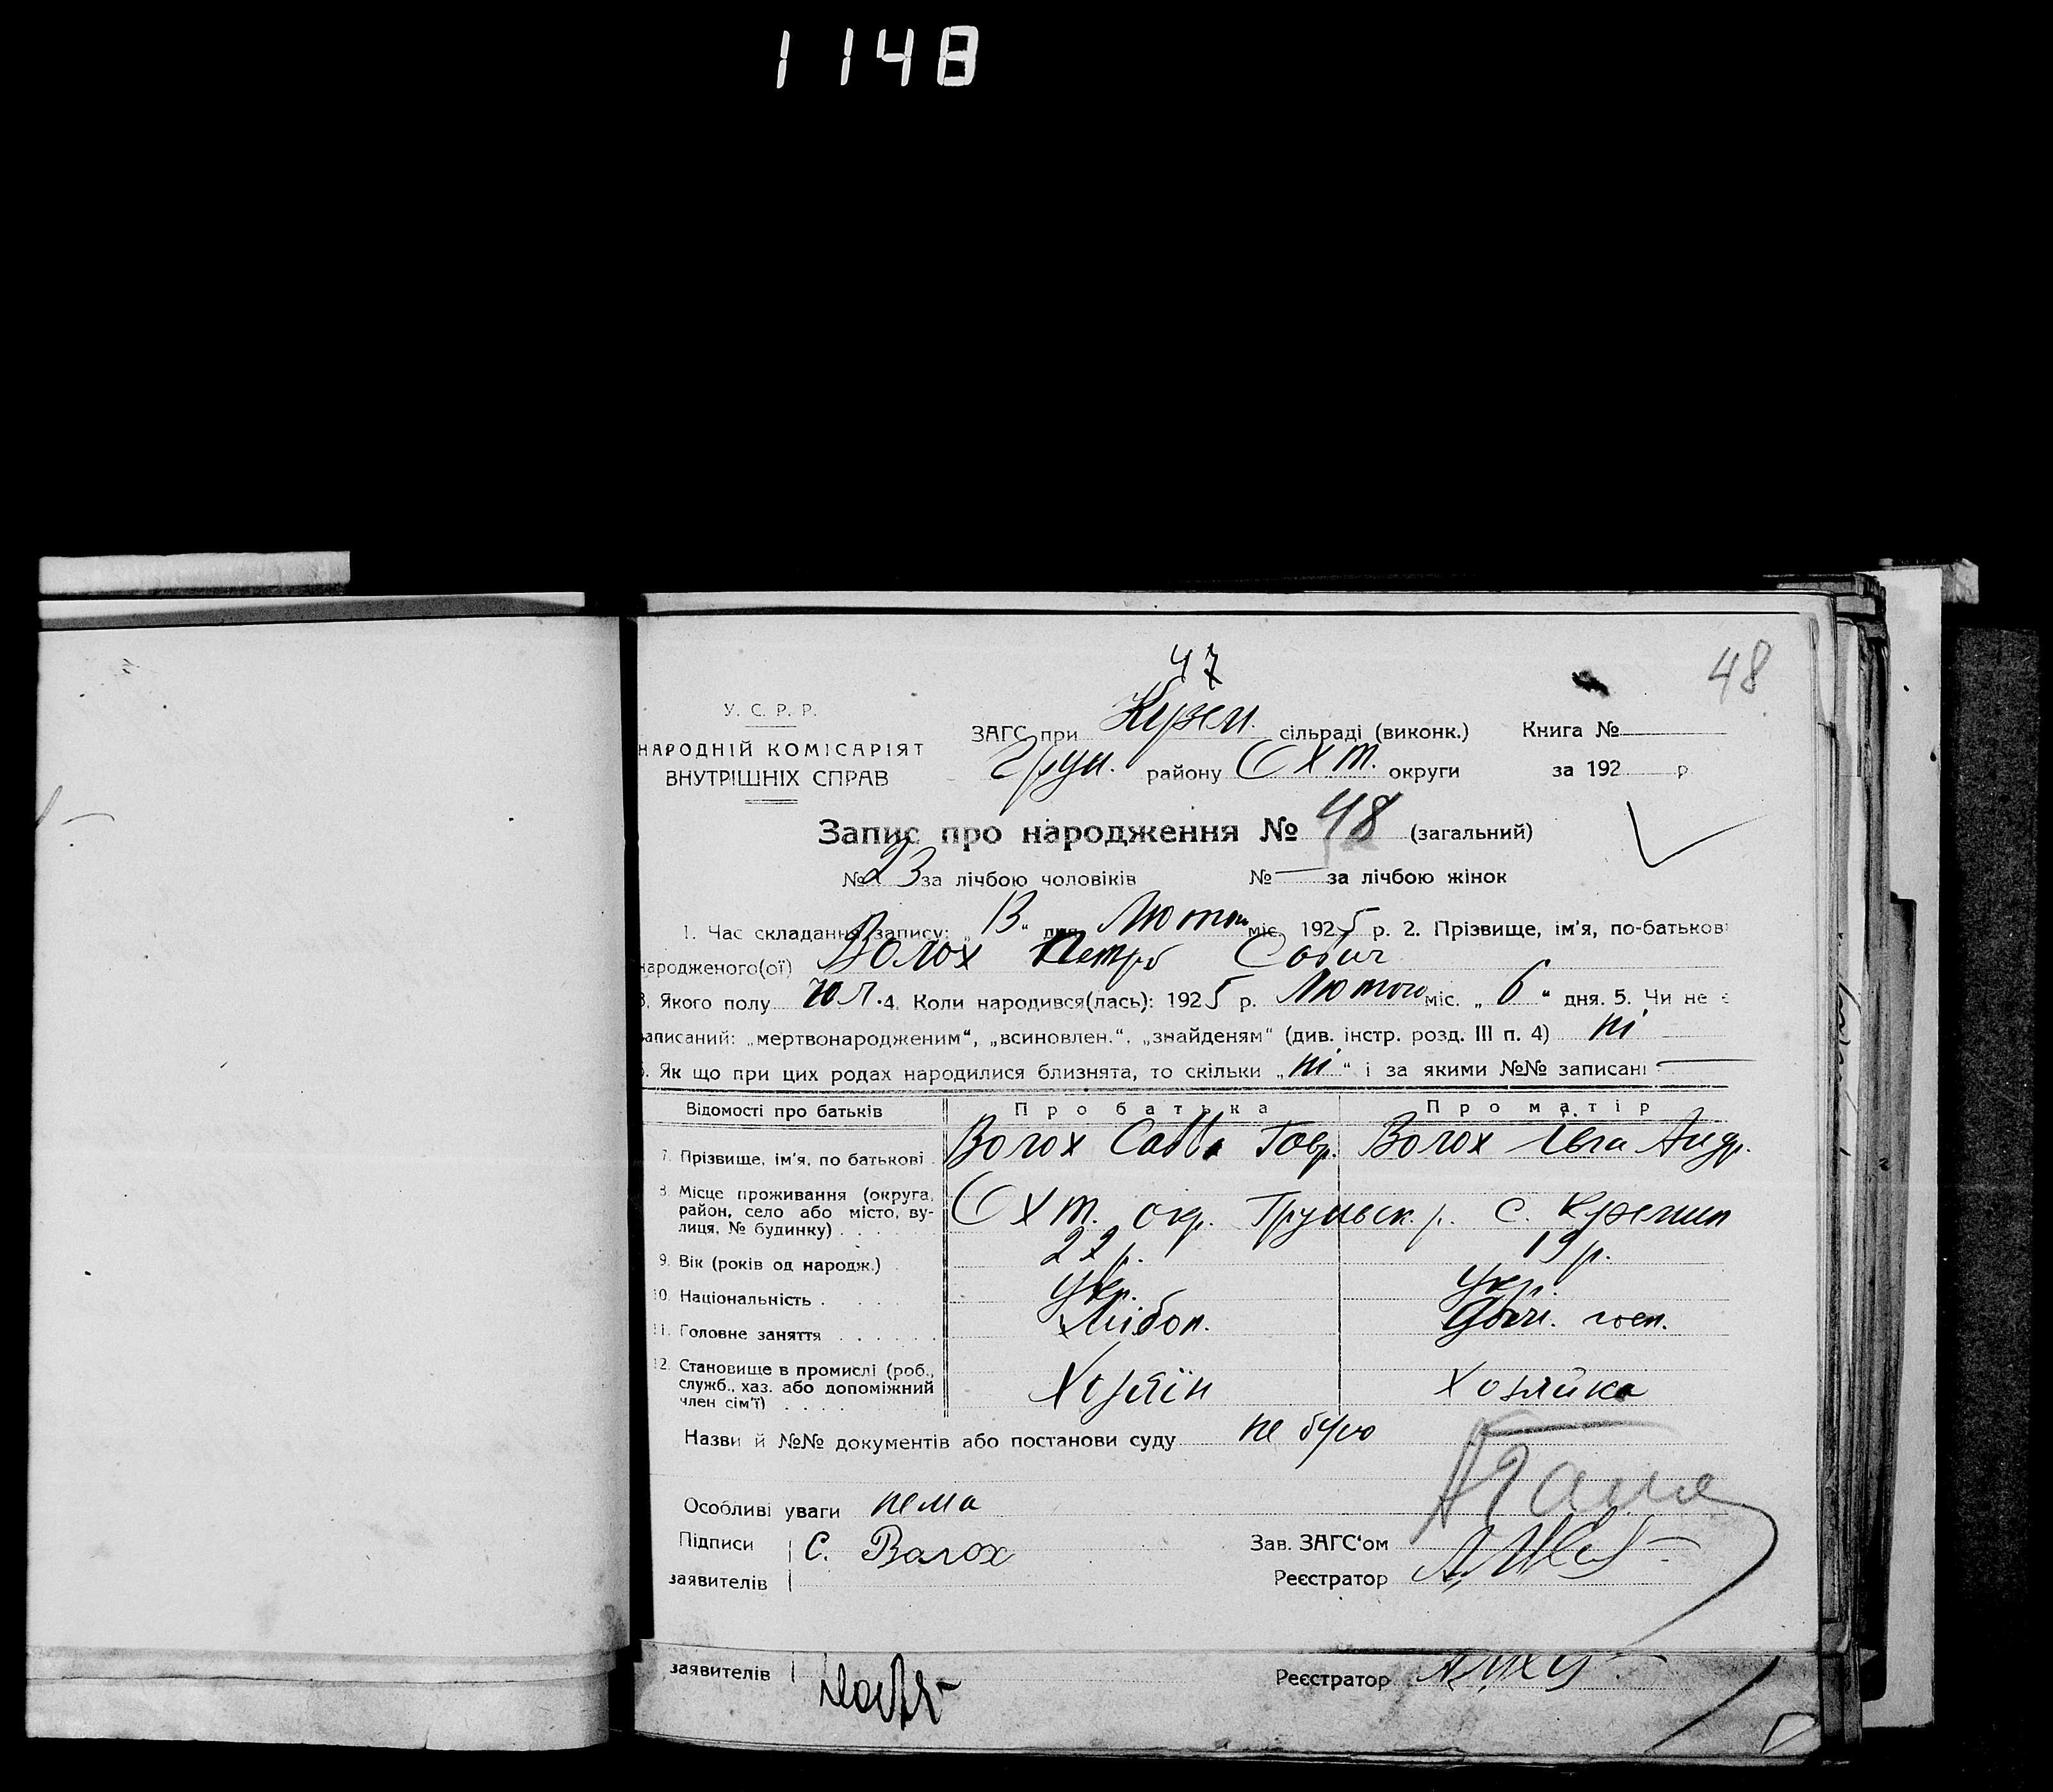 1148
47
48
У. С. Р. Р.
НАРОДНІЙ КОМІСАРІЯТ
ВНУТРІШНІХ СПРАВ
ЗАГС при сільраді (виконк.) Книга №
Грун. району Охт. округи за 192 р.
Запис про народження № 48 (загальний)
№ 23 за лічбою чоловіків № — за лічбою жінок
1. Час складання запису: „13“ дня Лютого міс. 1925 р. 2. Прізвище, ім'я, по-батькові
народженого(ої) Волох Петро Савич
3. Якого полу 4. Коли народився(лась): 1925 р. Лютого міс. „6“ дня. 5. Чи не є
записаний: „мертвонародженим“, „всиновлен.“, „знайденям“ (див. інстр. розд. III п. 4) ні
6. Як що при цих родах народилися близнята, то скільки „ні“ і за якими №№ записані —
Відомості про батьків Про батька Про матір
7. Прізвище, ім'я, по батькові Волох Савва Гавр. Волох Івга Андр.
8. Місце проживання (округа, район, село або місто, ву-
лиця, № будинку) Охт. окр. Грунськ. р. с.
9. Вік (років од народж.) 22 р. 19 р.
10. Національність Укр. Укр.
11. Головне заняття Хлібоп. госп.
12. Становище в промислі (роб.,
служб., хаз. або допоміжний
член сім'ї) Хозяїн Хозяйка
Назви й №№ документів або постанови суду не було
Особливі уваги нема
Підписи С. Волох Зав. ЗАГС'ом
заявителів Реєстратор
заявителів Реєстратор